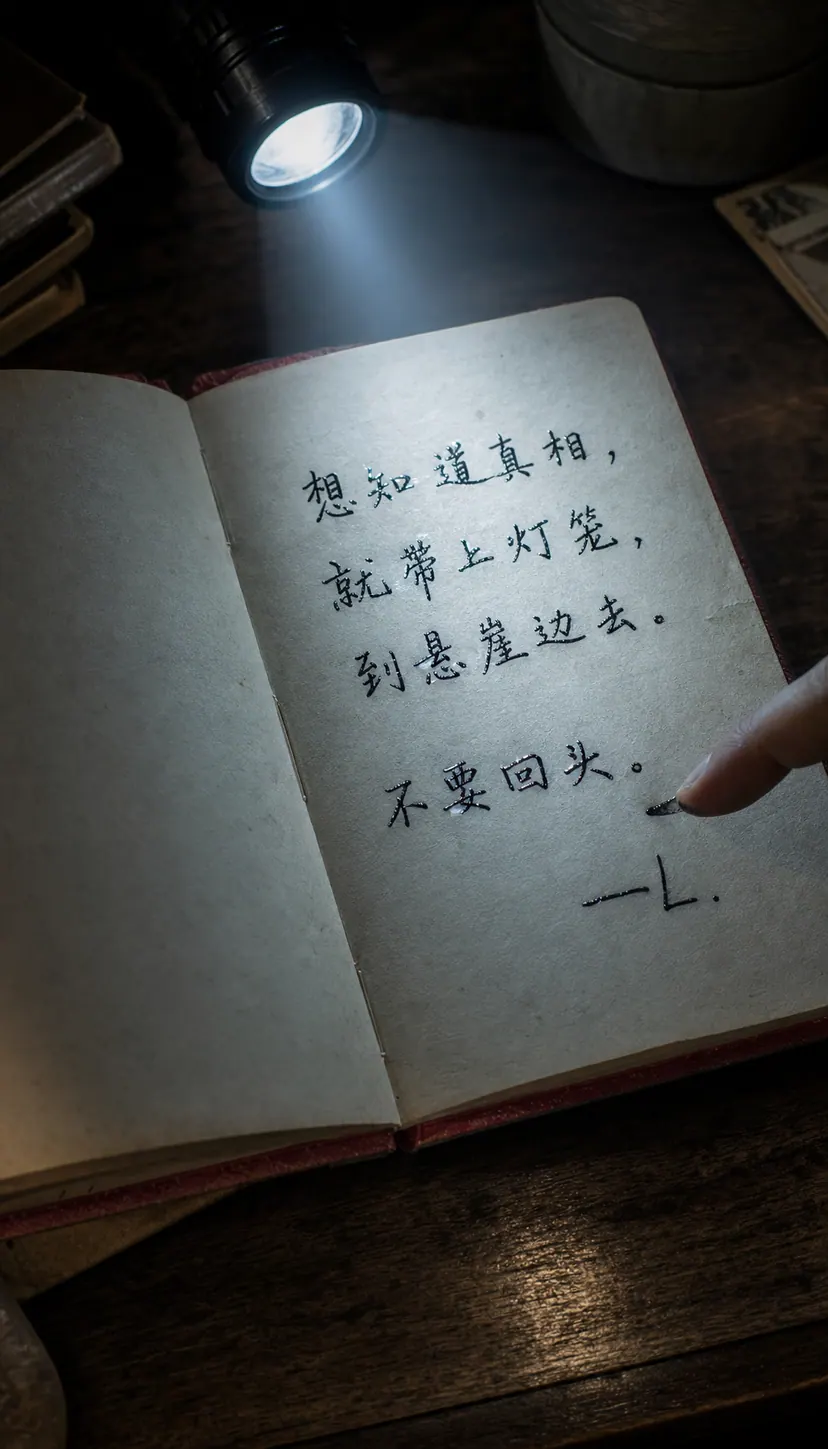 想知道真相，
就帶上灯笼，
到悬崖边去。
不要回头。
—L.